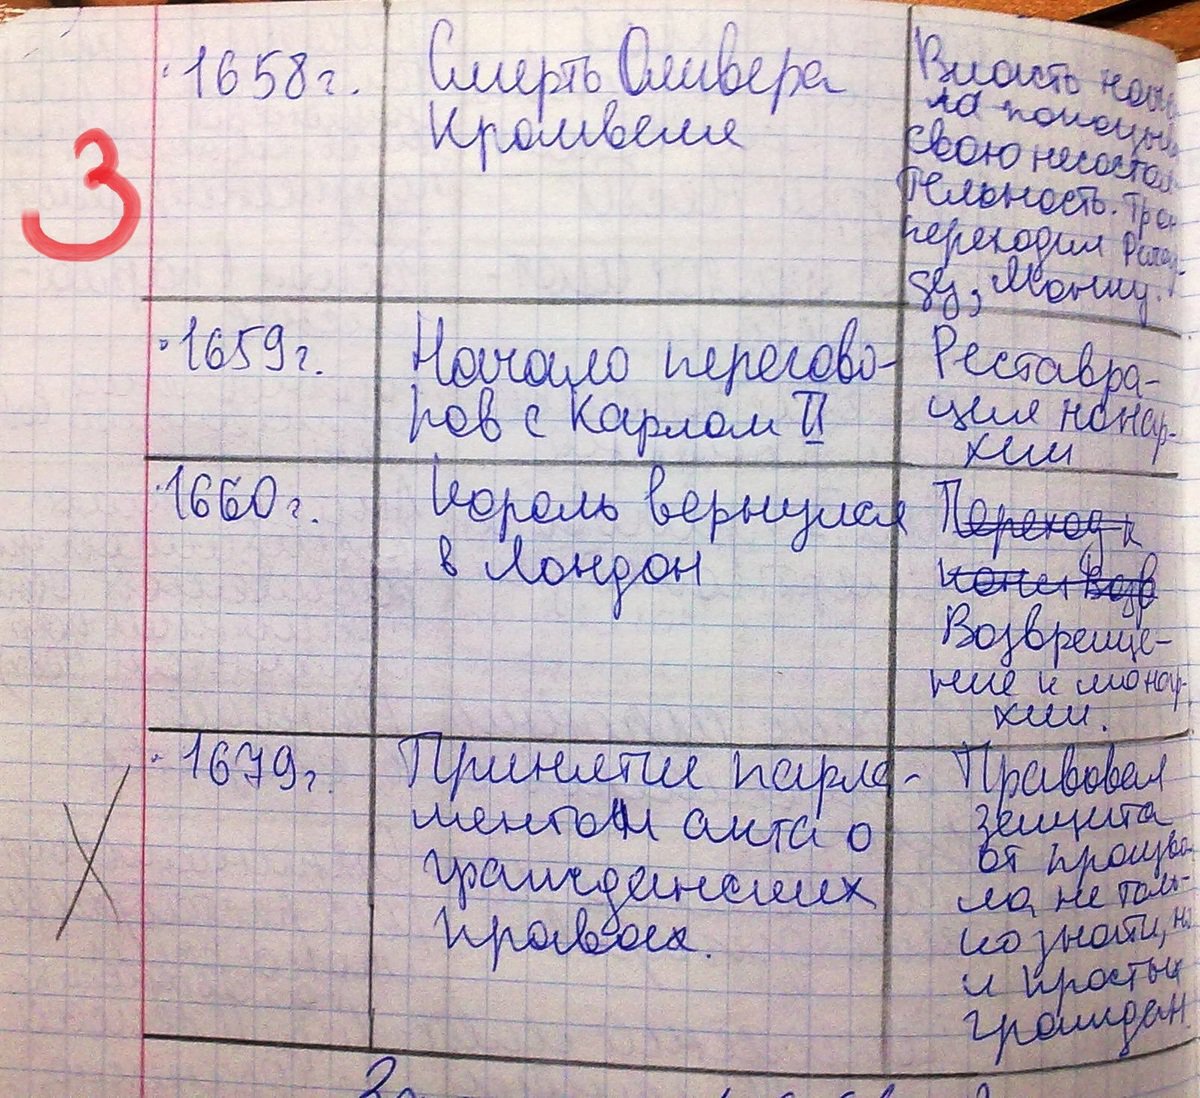 3
1658г.
Смерть Оливера
Кромвеля
Власть нача
ла показыв
свою несостоя
тельность. Трон
переходил Ричар-
ду, Монку.
1659г.
Начало перегово-
ров с Карлом II
Реставра-
ция монар-
хии
1660г.
Король вернулся
в Лондон
Переход к
Возвраще-
ние к монар-
хии.
1679г.
Принятие парла-
ментом акта о
гражданских
правах.
Правовая
защита
от произво-
ла, не толь-
ко знати, но
и простых
граждан